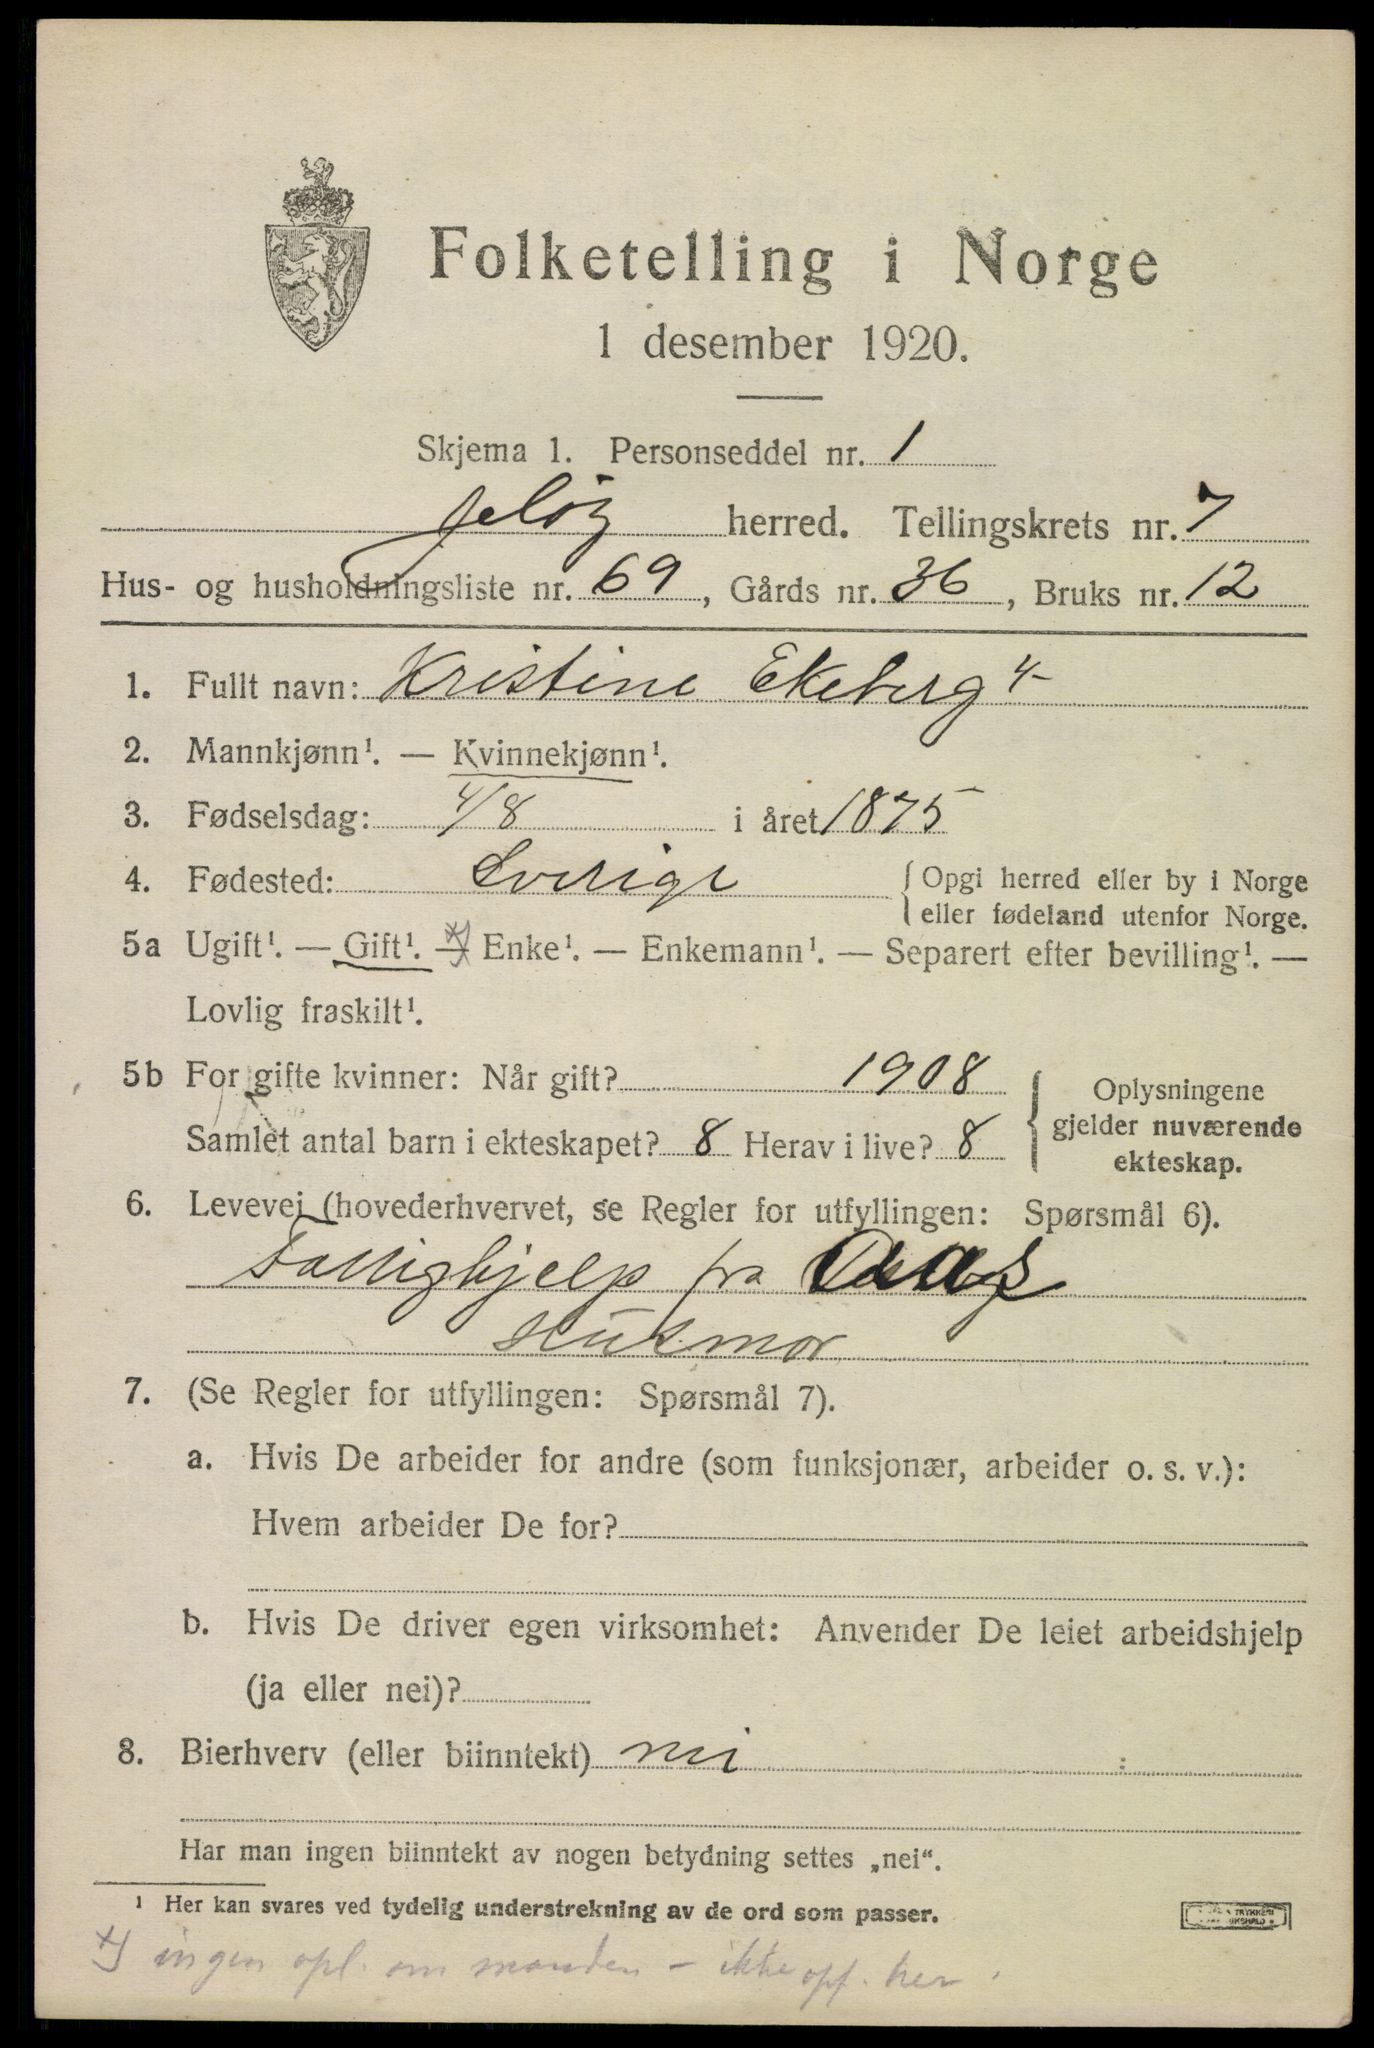 Folketelling i Norge
1 desember 1920.
Skjema 1. Personseddel nr. 1
Jeløy herred. Tellingskrets nr. 7
Hus- og husholdningsliste nr. 69, Gårds nr. 36, Bruks nr. 12
1. Fullt navn: Kristine Ekeberg 4-
2. Mannkjønn¹. — Kvinnekjønn¹.
3. Fødselsdag: 4/8 i året 1875
4. Fødested: Sverige {Opgi herred eller by i Norge
eller fødeland utenfor Norge.
5a Ugift¹. — Gift¹. — *) Enke¹. — Enkemann¹. — Separert efter bevilling¹. —
Lovlig fraskilt¹.
5b For gifte kvinner: Når gift? 1908
Samlet antal barn i ekteskapet? 8 Herav i live? 8
{Oplysningene
gjelder nuværende
ekteskap.
6. Levevei (hovederhvervet, se Regler for utfyllingen: Spørsmål 6).
Fattighjelp fra Aas
Husmor
7. (Se Regler for utfyllingen: Spørsmål 7).
a. Hvis De arbeider for andre (som funksjonær, arbeider o. s. v.):
Hvem arbeider De for?
b. Hvis De driver egen virksomhet: Anvender De leiet arbeidshjelp
(ja eller nei)?
8. Bierhverv (eller biinntekt) nei
Har man ingen biinntekt av nogen betydning settes „nei“.
¹ Her kan svares ved tydelig understrekning av de ord som passer.
*) ingen opl. om manden – ikke opf. her.